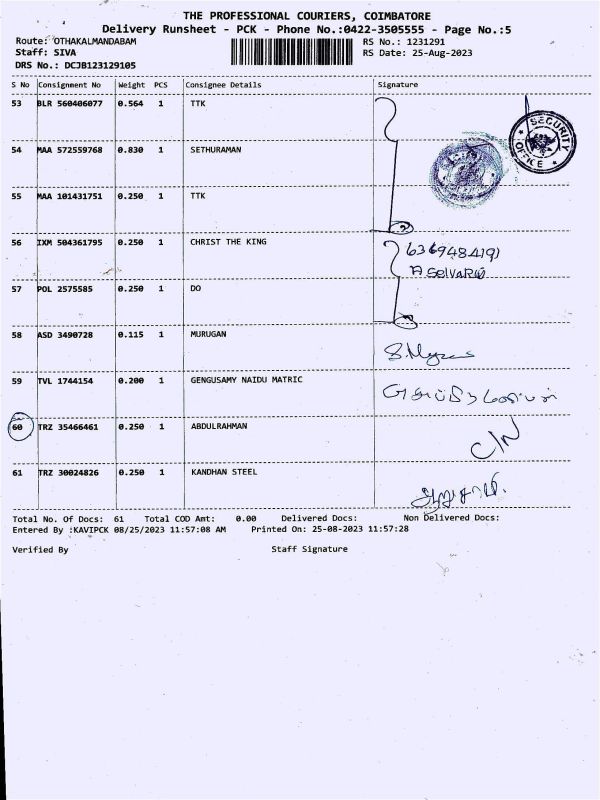 THE PROFESSIONAL COURIERS, COIMBATORE
Delivery Runsheet - PCK - Phone No.:0422-3505555 - Page No.:5
Route: OTHAKALMANDABAM RS No.: 1231291
Staff: SIVA RS Date: 25-Aug-2023
DRS No.: DCJB123129105
S No Consignment No Weight PCS Consignee Details Signature
53 BLR 560406077 0.564 1 TTK
SECURITY OFFICE
54 MAA 572559768 0.830 1 SETHURAMAN
55 MAA 101431751 0.250 1 TTK
56 IXM 504361795 0.250 1 CHRIST THE KING 6369484191
A Selvaraj
57 POL 2575585 0.250 1 DO
58 ASD 3490728 0.115 1 MURUGAN
59 TVL 1744154 0.200 1 GENGUSAMY NAIDU MATRIC
60 TRZ 35466461 0.250 1 ABDULRAHMAN C/N
61 TRZ 30024826 0.250 1 KANDHAN STEEL
Total No. Of Docs: 61 Total COD Amt: 0.00 Delivered Docs: Non Delivered Docs:
Entered By :KAVIPCK 08/25/2023 11:57:08 AM Printed On: 25-08-2023 11:57:28
Verified By Staff Signature